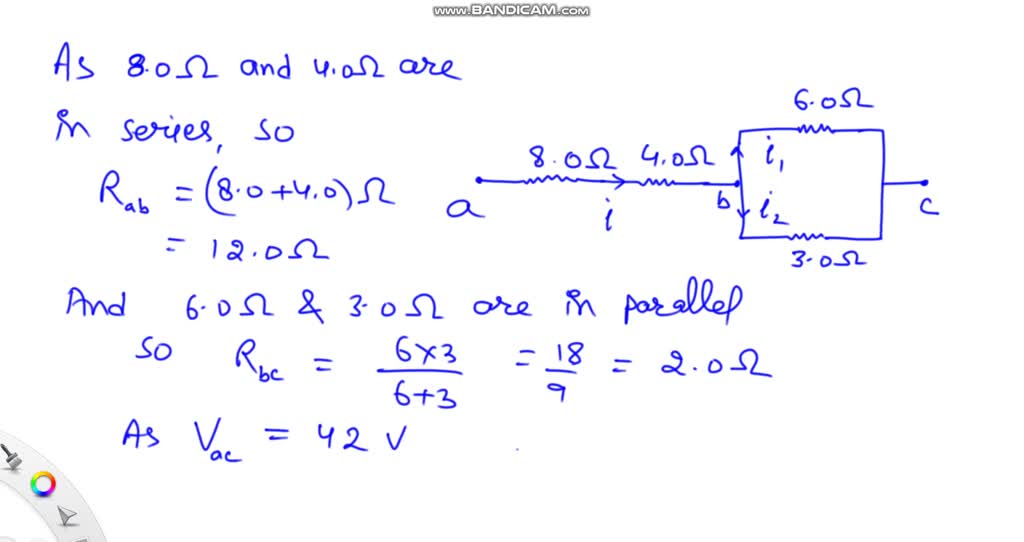 www.BANDICAM.com
As 8.0Ω and 4.0Ω are
in series, so
R_ab = (8.0+4.0)Ω
= 12.0Ω
6.0Ω
8.0Ω 4.0Ω
i₁
a
i
b
i₂
c
3.0Ω
And 6.0Ω & 3.0Ω are in parallel
so R_bc = 6×3 / 6+3 = 18/9 = 2.0Ω
As V_ac = 42 V